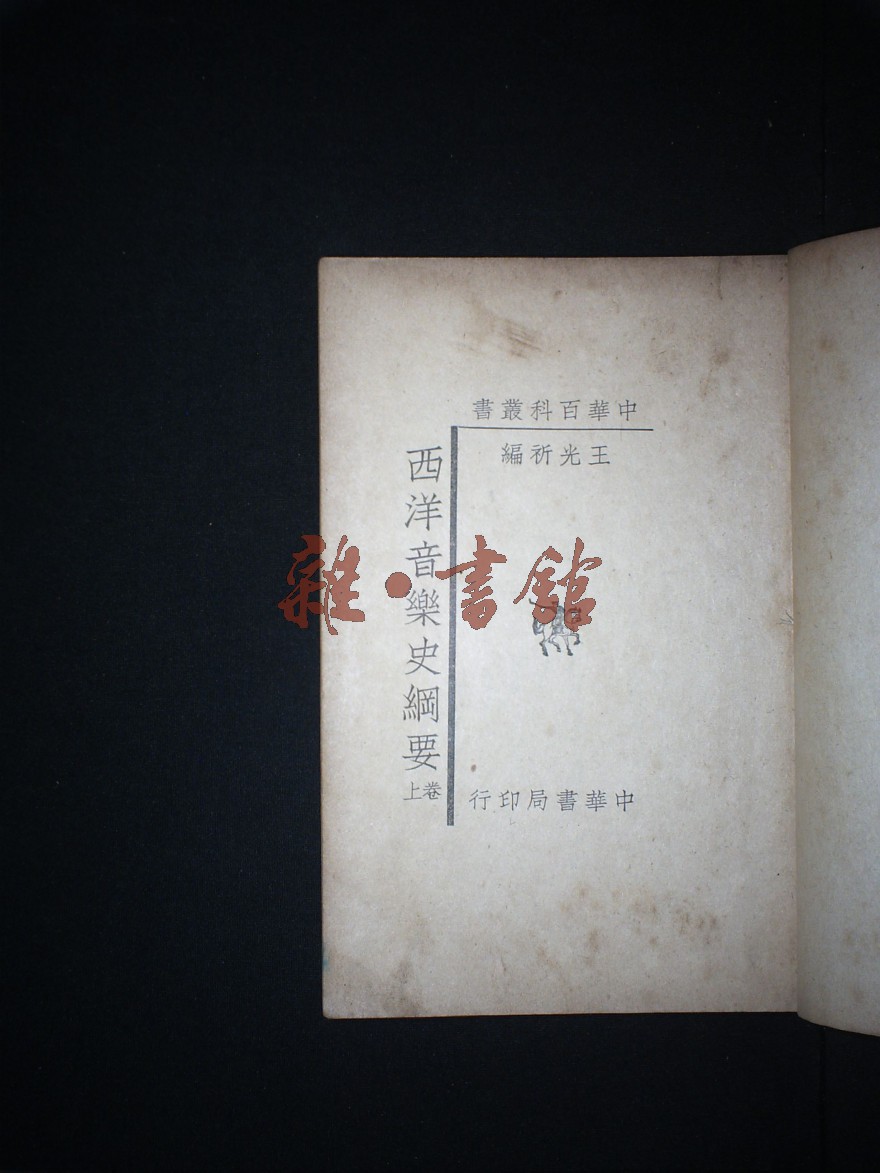 中華百科叢書
王光祈編
西洋音樂史綱要
卷上
中華書局印行
雜·書館